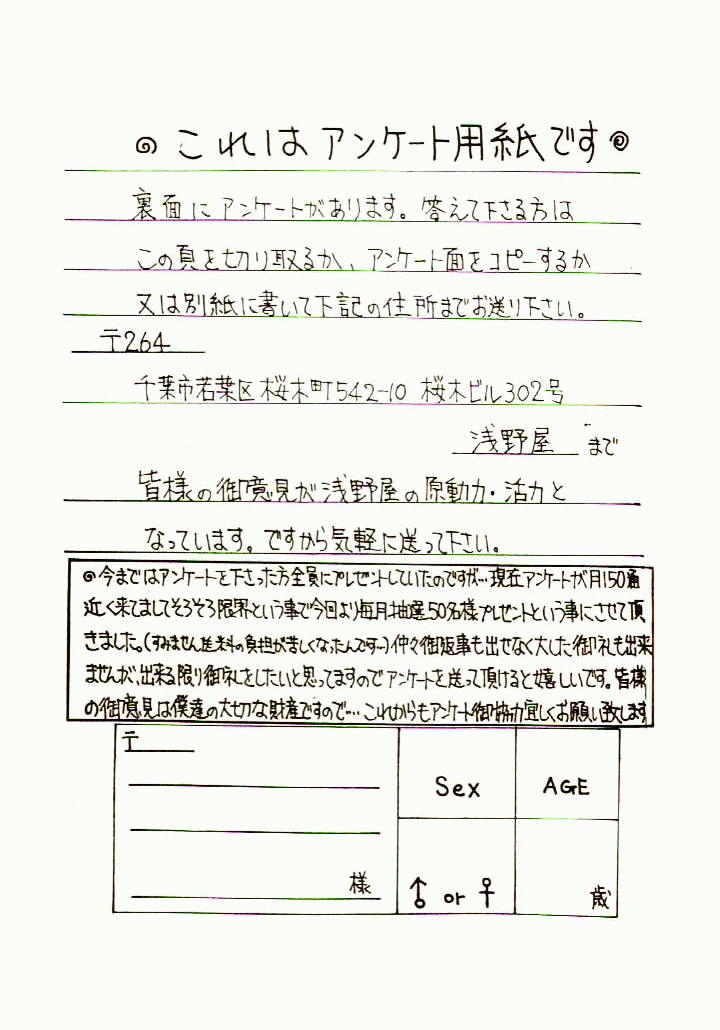 ◎これはアンケート用紙です◎
裏面にアンケートがあります。答えて下さる方は
この頁を切り取るか、アンケート面をコピーするか
又は別紙に書いて下記の住所までお送り下さい。
〒264
千葉市若葉区桜木町542-10 桜木ビル302号
浅野屋 まで
皆様の御意見が浅野屋の原動力・活力と
なっています。ですから気軽に送って下さい。
◎今まではアンケートを下さった方全員にプレゼントしていたのですが…現在アンケートが月150通
近く来てましてそろそろ限界という事で今回より毎月抽選50名様プレゼントという事にさせて頂
きました。(すみません送料の負担が苦しくなったんです〜)仲々御返事も出せなく大した御礼も出来
ませんが、出来る限り御礼をしたいと思ってますのでアンケートを送って頂けると嬉しいです。皆様
の御意見は僕達の大切な財産ですので…これからもアンケート御協力宜しくお願い致します
〒
Sex AGE
様 ♂ or ♀ 歳